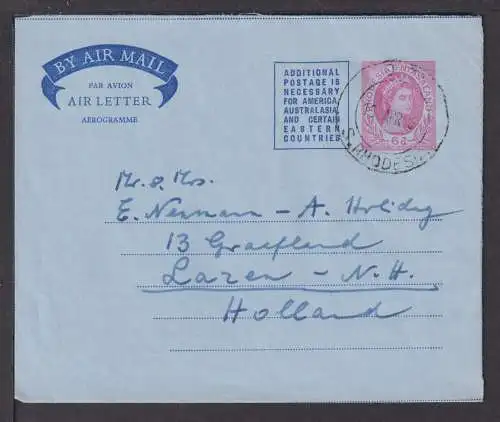 BY AIR MAIL
PAR AVION
AIR LETTER
AEROGRAMME
ADDITIONAL
POSTAGE IS
NECESSARY
FOR AMERICA,
AUSTRALASIA,
AND CERTAIN
EASTERN
COUNTRIES
6d
S. RHODESIA
Mr. & Mrs.
E. Neumann - A. Holidig
13 Graefland
Laren - N.H.
Holland